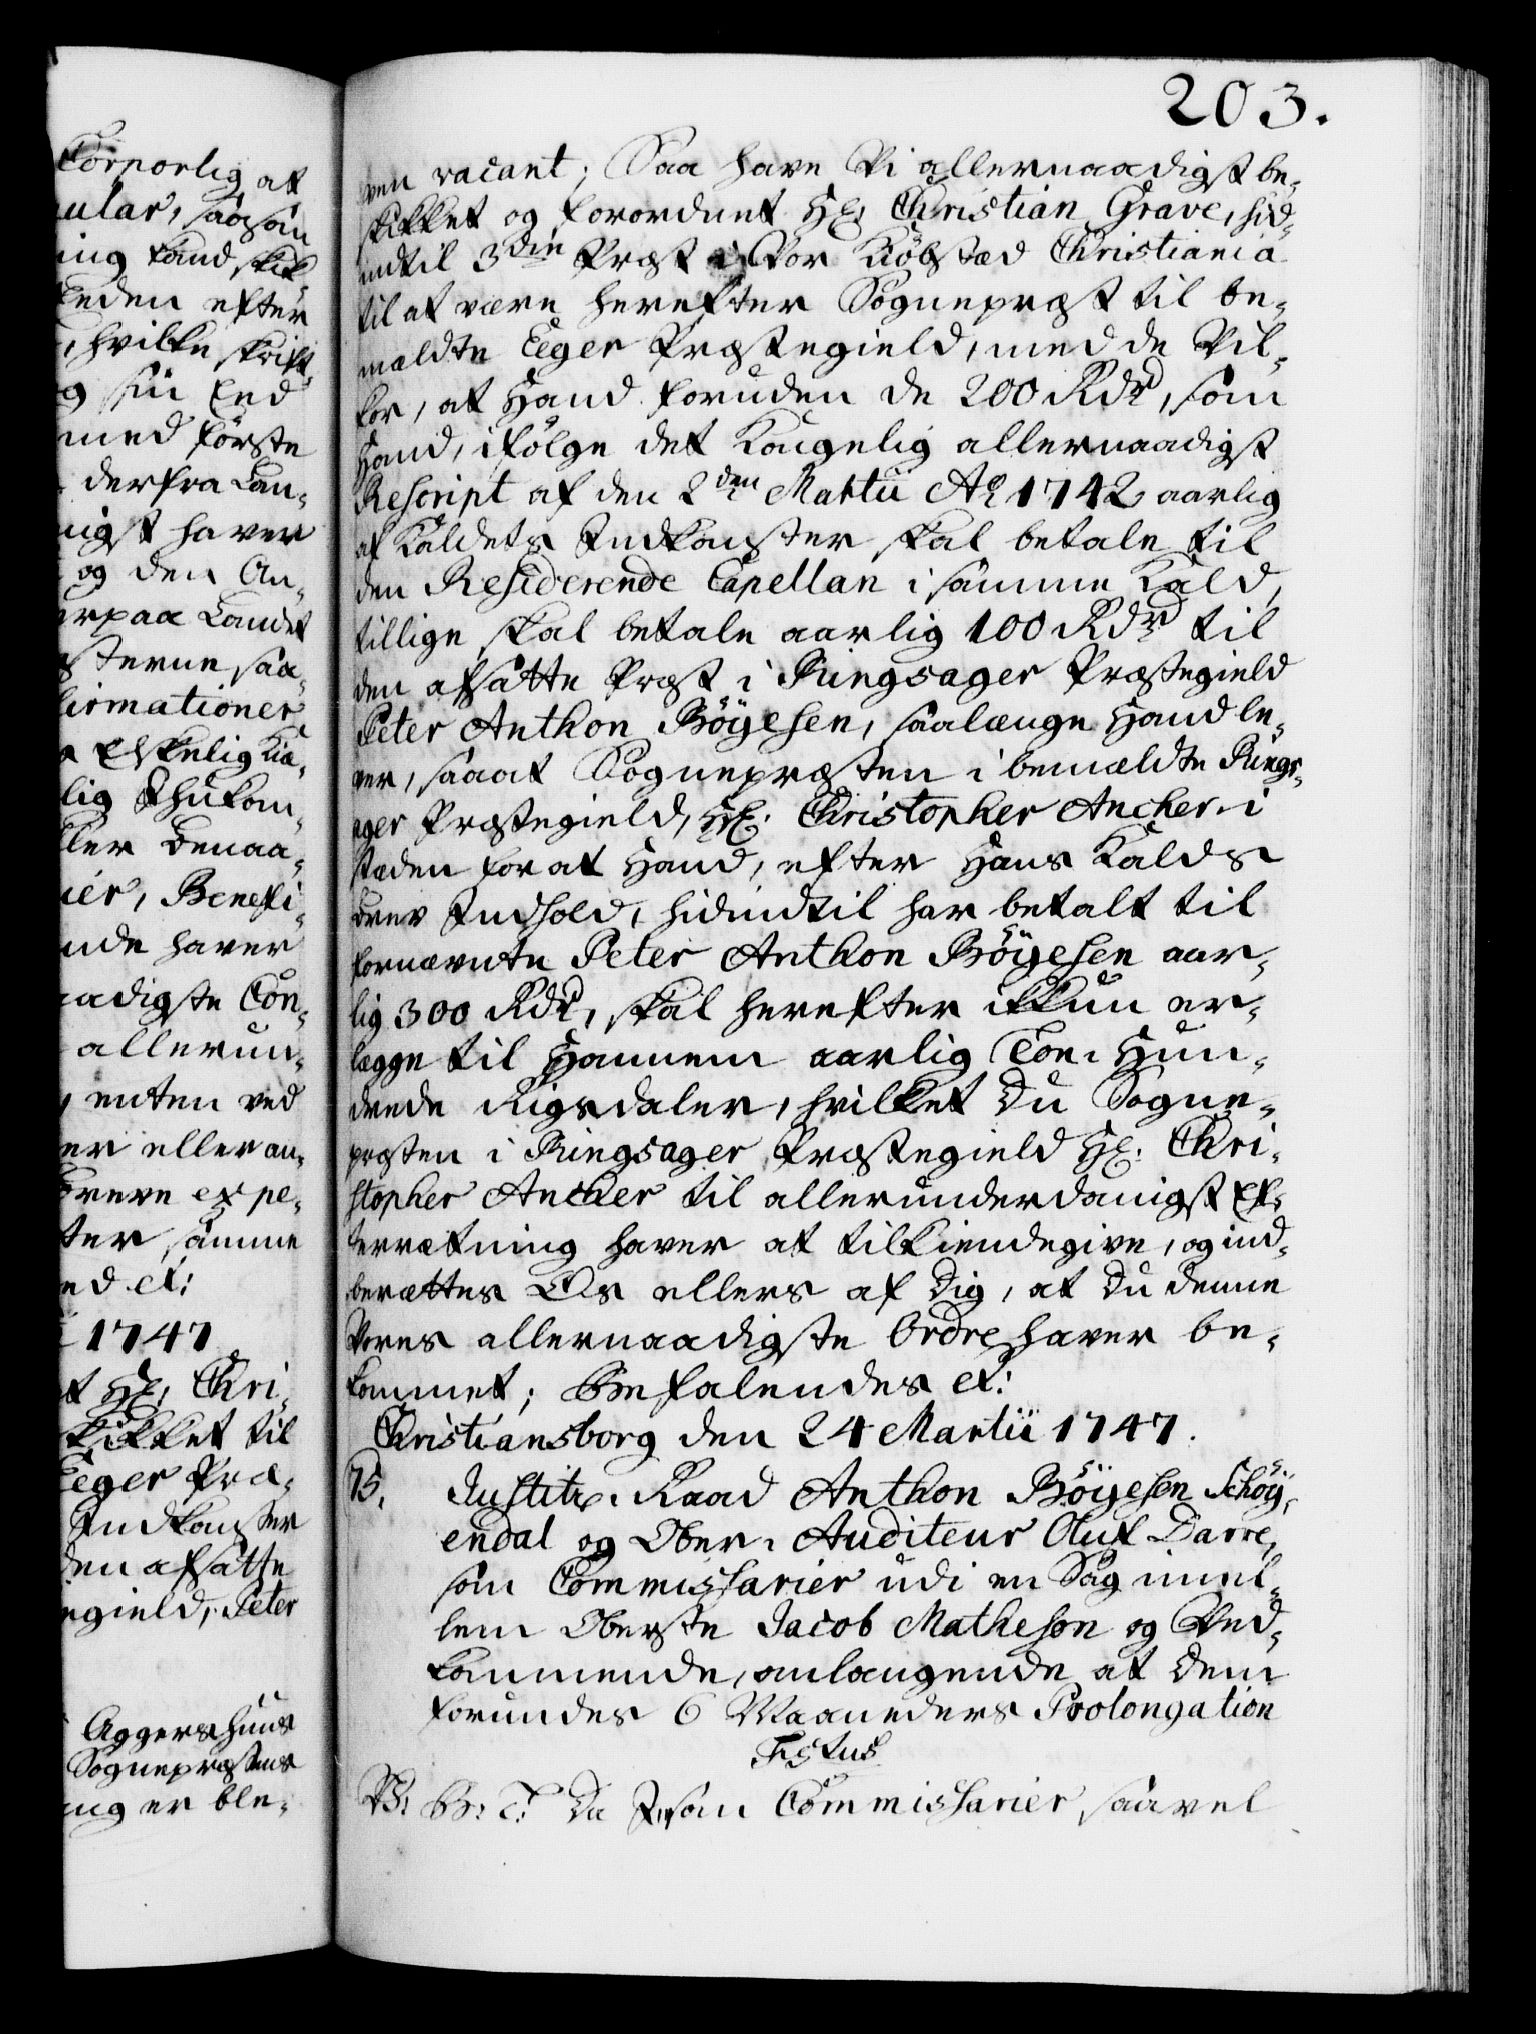 203.
Corporlig at
ular, saasom
ing kand skik
Eeden efter
, hvilke skrift
g sin Eed
med første
derfra Lan-
nigst haver
og den An-
erpaa Landet
sterne, saa-
firmationer
Elskelig Kiæ-
lig Ihukom-
ller Benaa-
ier, Benefi-
nde haver
aadigste Con-
allerun-
, enten ved
er eller an-
breve expe-
ter samme
ed. etc:
1747
at Hr. Chri-
skikket til
Eeger Præ-
Indkomster
den afsatte
egield, Peter
Aggershuus
Sognepræstens
ng er ble-
ven vacant; Saa have Vi allernaadigst be-
skikket og forordnet Hr. Christian Grave, hid-
indtil 3die Præst i Vor Kiøbstæd Christiania
til at være herefter Sognepræst til be-
mældte Eeger Præstegield, med de Vil-
kor, at Hand foruden de 200 Rdr, som
Hand, ifølge det Kongelig allernaadigst
Rescript af den 2den Martii Ao 1742 aarlig
af Kaldets Indkomster skal betale til
den Residerende Capellan i samme Kald,
tillige skal betale aarlig 100 Rdr til
den afsatte Præst i Ringsager Præstegield
Peter Anthon Bøyesen, saalænge Hand le-
ver, saa at Sognepræsten i bemældte Rings-
ager Præstegield, Hr. Christopher Ancher i
stæden for at Hand, efter Hans Kalds
brev Indhold, hidindtil har betalt til
fornævnte Peter Anthon Bøyesen aar-
lig 300 Rdr, skal herefter ikkun er-
lægge til Hannem aarlig Toe Hun-
drede Rigsdaler, hvilket Du Sogne-
præsten i Ringsager Præstegield Hr. Chri-
stopher Ancher til allerunderdanigst Ef-
terretning haver at tilkiendegive, og ind-
berættes Os ellers af Dig, at Du denne
Vores allernaadigste Ordre haver be-
kommet; Befalendes etc:
Christiansborg den 24 Martii 1747.
75. Justitz-Raad Anthon Bøyesen Schøy-
endal og Ober-Auditeur Oluf Darre,
som Commissarier udi en Sag imel-
lem Oberste Jacob Matheson og Ved-
kommende, anlangende at dem
forundes 6 Maaneders Prolongation
Fistus
V: G: T: Da I, som Commissarier, saavel